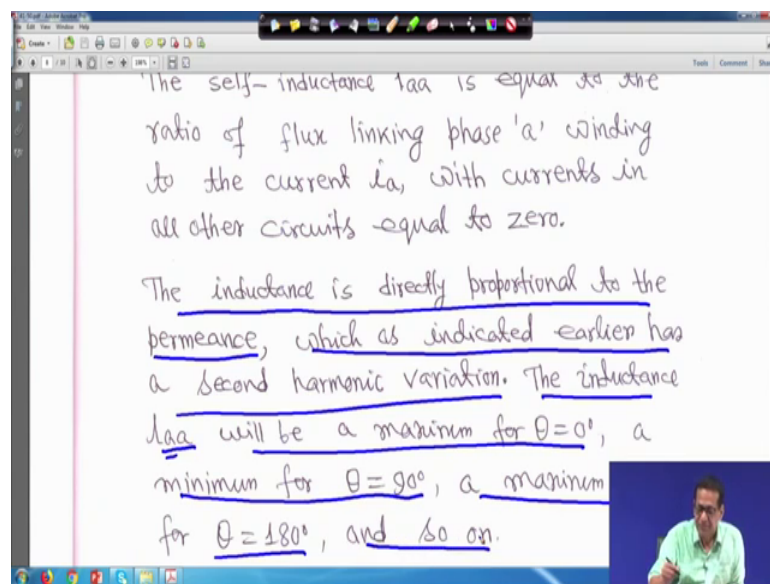 41-50.pdf - Adobe Acrobat Pro
File Edit View Window Help
Create
Tools Comment
The self-inductance laa is equal to the
ratio of flux linking phase 'a' winding
to the current ia, with currents in
all other circuits equal to zero.
The inductance is directly proportional to the
permeance, which as indicated earlier has
a second harmonic variation. The inductance
laa will be a maximum for θ=0°, a
minimum for θ=90°, a maximum
for θ=180°, and so on.